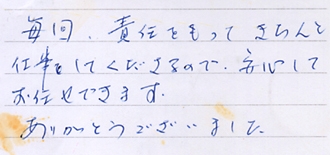 毎回、責任をもって きちんと
仕事をしてくださるので、安心して
お任せできます。
ありがとうございました。